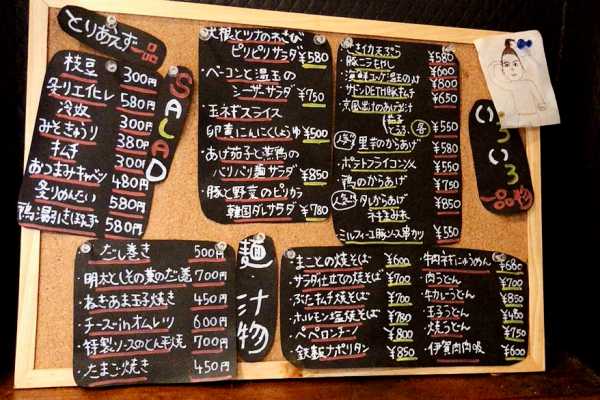 とりあえず一品
枝豆 300円
炙りエイヒレ 580円
冷奴 300円
みそきゅうり 380円
キムチ 300円
おつまみキャベツ 480円
炙りめんたい 580円
580円
SALAD
大根とツナのわさび
ピリピリサラダ ¥580
・ベーコンと温玉の
シーザーサラダ ¥750
・玉ネギスライス
卵黄にんにくしょうゆ ¥500
・あげ茄子と蒸鶏の
バリバリ麺サラダ ¥850
・豚と野菜のピリカラ
韓国ダレサラダ ¥780
いろいろ一品物
¥580
豚こうもやし ¥600
¥800
・サドンDETH豚キムチ ¥650
・京風出汁のあげ出汁
茄子
とうふ 各 ¥550
人気 里芋のからあげ ¥580
・ポテトフライコンソメ ¥550
・鴨のからあげ ¥750
人気 タレからあげ
¥850
ミルフィーユ豚ソース串カツ ¥550
・だし巻き 500円
・明太としその葉のだし巻 700円
・ねぎあま玉子焼き 450円
・チーズinオムレツ 600円
・特製ソースのとん平焼 700円
・たまご焼き 450円
麺 汁物
・まことの焼そば ¥600
・サラダ仕立ての焼そば ¥700
・ぶたキムチ焼そば ¥700
・ホルモン塩焼そば ¥780
・ペペロンチーノ ¥800
・鉄板ナポリタン ¥850
・牛肉ネギにゅうめん ¥680
・肉うどん ¥700
・牛カレーうどん ¥850
・玉子うどん ¥480
・焼うどん ¥750
・伊賀肉肉吸 ¥600